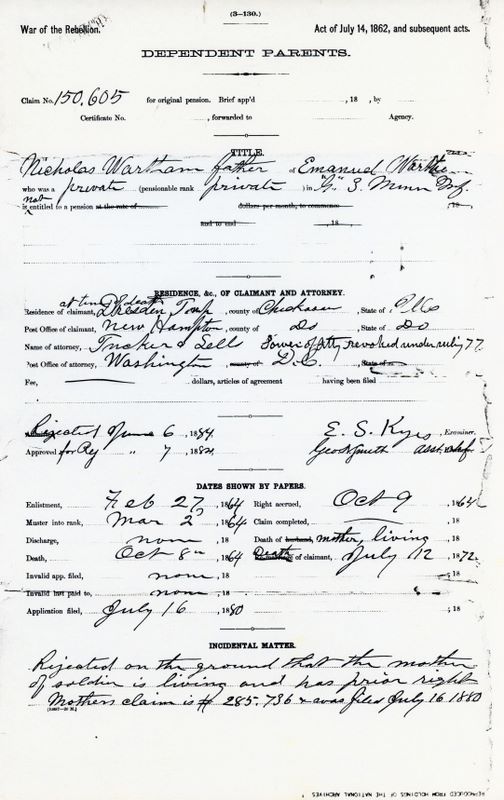 (3—130.)
War of the Rebellion. Act of July 14, 1862, and subsequent acts.
DEPENDENT PARENTS.
Claim No. 150,605 for original pension. Brief app'd , 18 , by
Certificate No. , forwarded to Agency.
TITLE.
Nicholas Wartham father of Emanuel
who was a private (pensionable rank private) in "G" 5 Minn Inf
not
is entitled to a pension at the rate of dollars per month, to commence , 18
and to end , 18 .
RESIDENCE, &c., OF CLAIMANT AND ATTORNEY.
at time of death
Residence of claimant, Dresden Town, county of Chickasaw, State of
Post Office of claimant, New Hampton, county of Do, State of Do
Name of attorney, Tucker & Sells Power of Atty revoked under ruling 77
Post Office of attorney, Washington, county of D.C., State of
Fee, dollars, articles of agreement having been filed
Rejected June 6, 1884. E. S. Kyes, Examiner.
Approved for Rej " 7, 1884.
DATES SHOWN BY PAPERS.
Enlistment, Feb 27, 1864 Right accrued, Oct 9, 1864
Muster into rank, Mar 2, 1864. Claim completed, , 18
Discharge, none, 18 Death of husband, mother, living
Death, Oct 8th, 1864 Death of claimant, July 12, 1872.
Invalid app. filed, none, 18 ; 18
Invalid last paid to, none, 18 ; 18
Application filed, July 16, 1880 ; 18
INCIDENTAL MATTER.
Rejected on the ground that the mother
of soldier is living and has prior right
Mothers claim is # 285.736 & was filed July 16 1880
REPRODUCED FROM HOLDINGS OF THE NATIONAL ARCHIVES